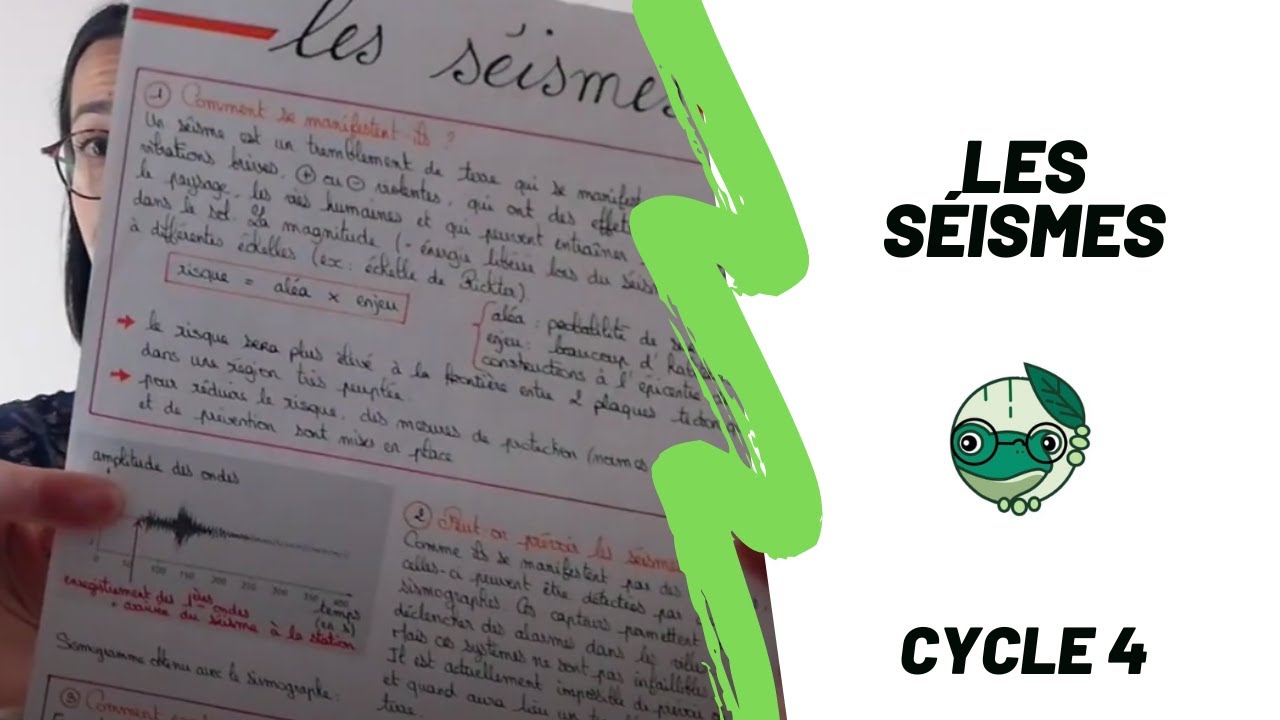 les séismes
1 Comment se manifestent ils ?
Un séisme est un tremblement de terre qui se manifest
vibrations brèves, + ou - violentes, qui ont des effet
le paysage, les vies humaines et qui peuvent entraîner
dans le sol. La magnitude (= énergie libérée lors du séis
à différentes échelles (ex: échelle de Richter).
risque = aléa x enjeu
aléa : probabilité de
enjeu : beaucoup d'habi
constructions à l'épicentre
→ le risque sera plus élevé à la frontière entre 2 plaques tecton
dans une région très peuplée.
→ pour réduire le risque, des mesures de protection (normes
et de prévention sont mises en place
amplitude des ondes
50 100 150 200 250 300 350 400
temps
(en s)
enregistrement des 1ères ondes
= arrivée du séisme à la station
Sismogramme obtenu avec le sismographe :
2 Peut on prévoir les séisme
Comme ils se manifestent par des
celles-ci peuvent être détectées par
sismographes. Ces capteurs permettent
déclencher des alarmes dans les villes
Mais ces systèmes ne sont pas infaillibles
Il est actuellement impossible de prévoir
et quand aura lieu un
terre.
3 Comment
LES
SÉISMES
CYCLE 4